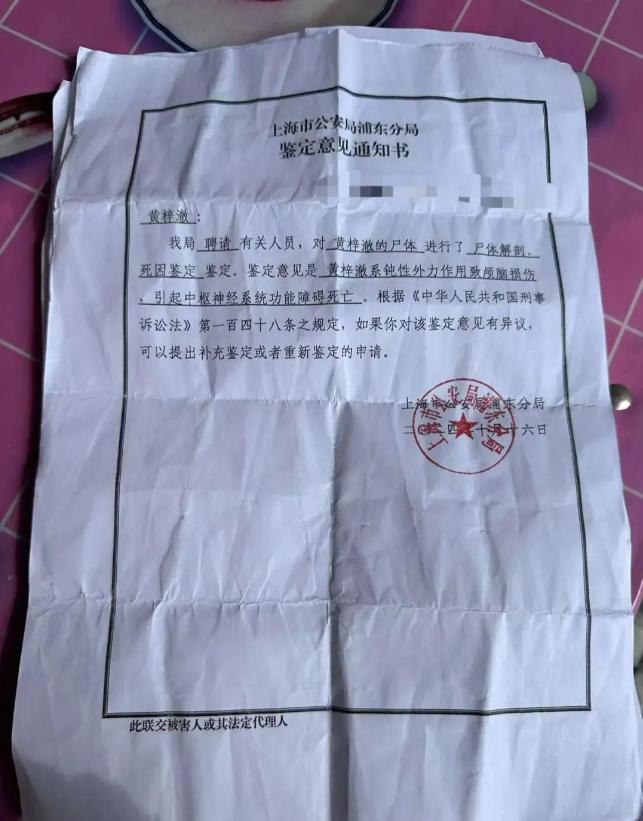 上海市公安局浦东分局
鉴定意见通知书
黄梓澈：
我局 聘请 有关人员，对 黄梓澈的尸体 进行了 尸体解剖、
死因鉴定 鉴定。鉴定意见是 黄梓澈系钝性外力作用致颅脑损伤
、引起中枢神经系统功能障碍死亡 。根据《中华人民共和国刑事
诉讼法》第一百四十八条之规定，如果你对该鉴定意见有异议，
可以提出补充鉴定或者重新鉴定的申请。
上海市公安局浦东分局
二〇二四 十月十六日
此联交被害人或其法定代理人